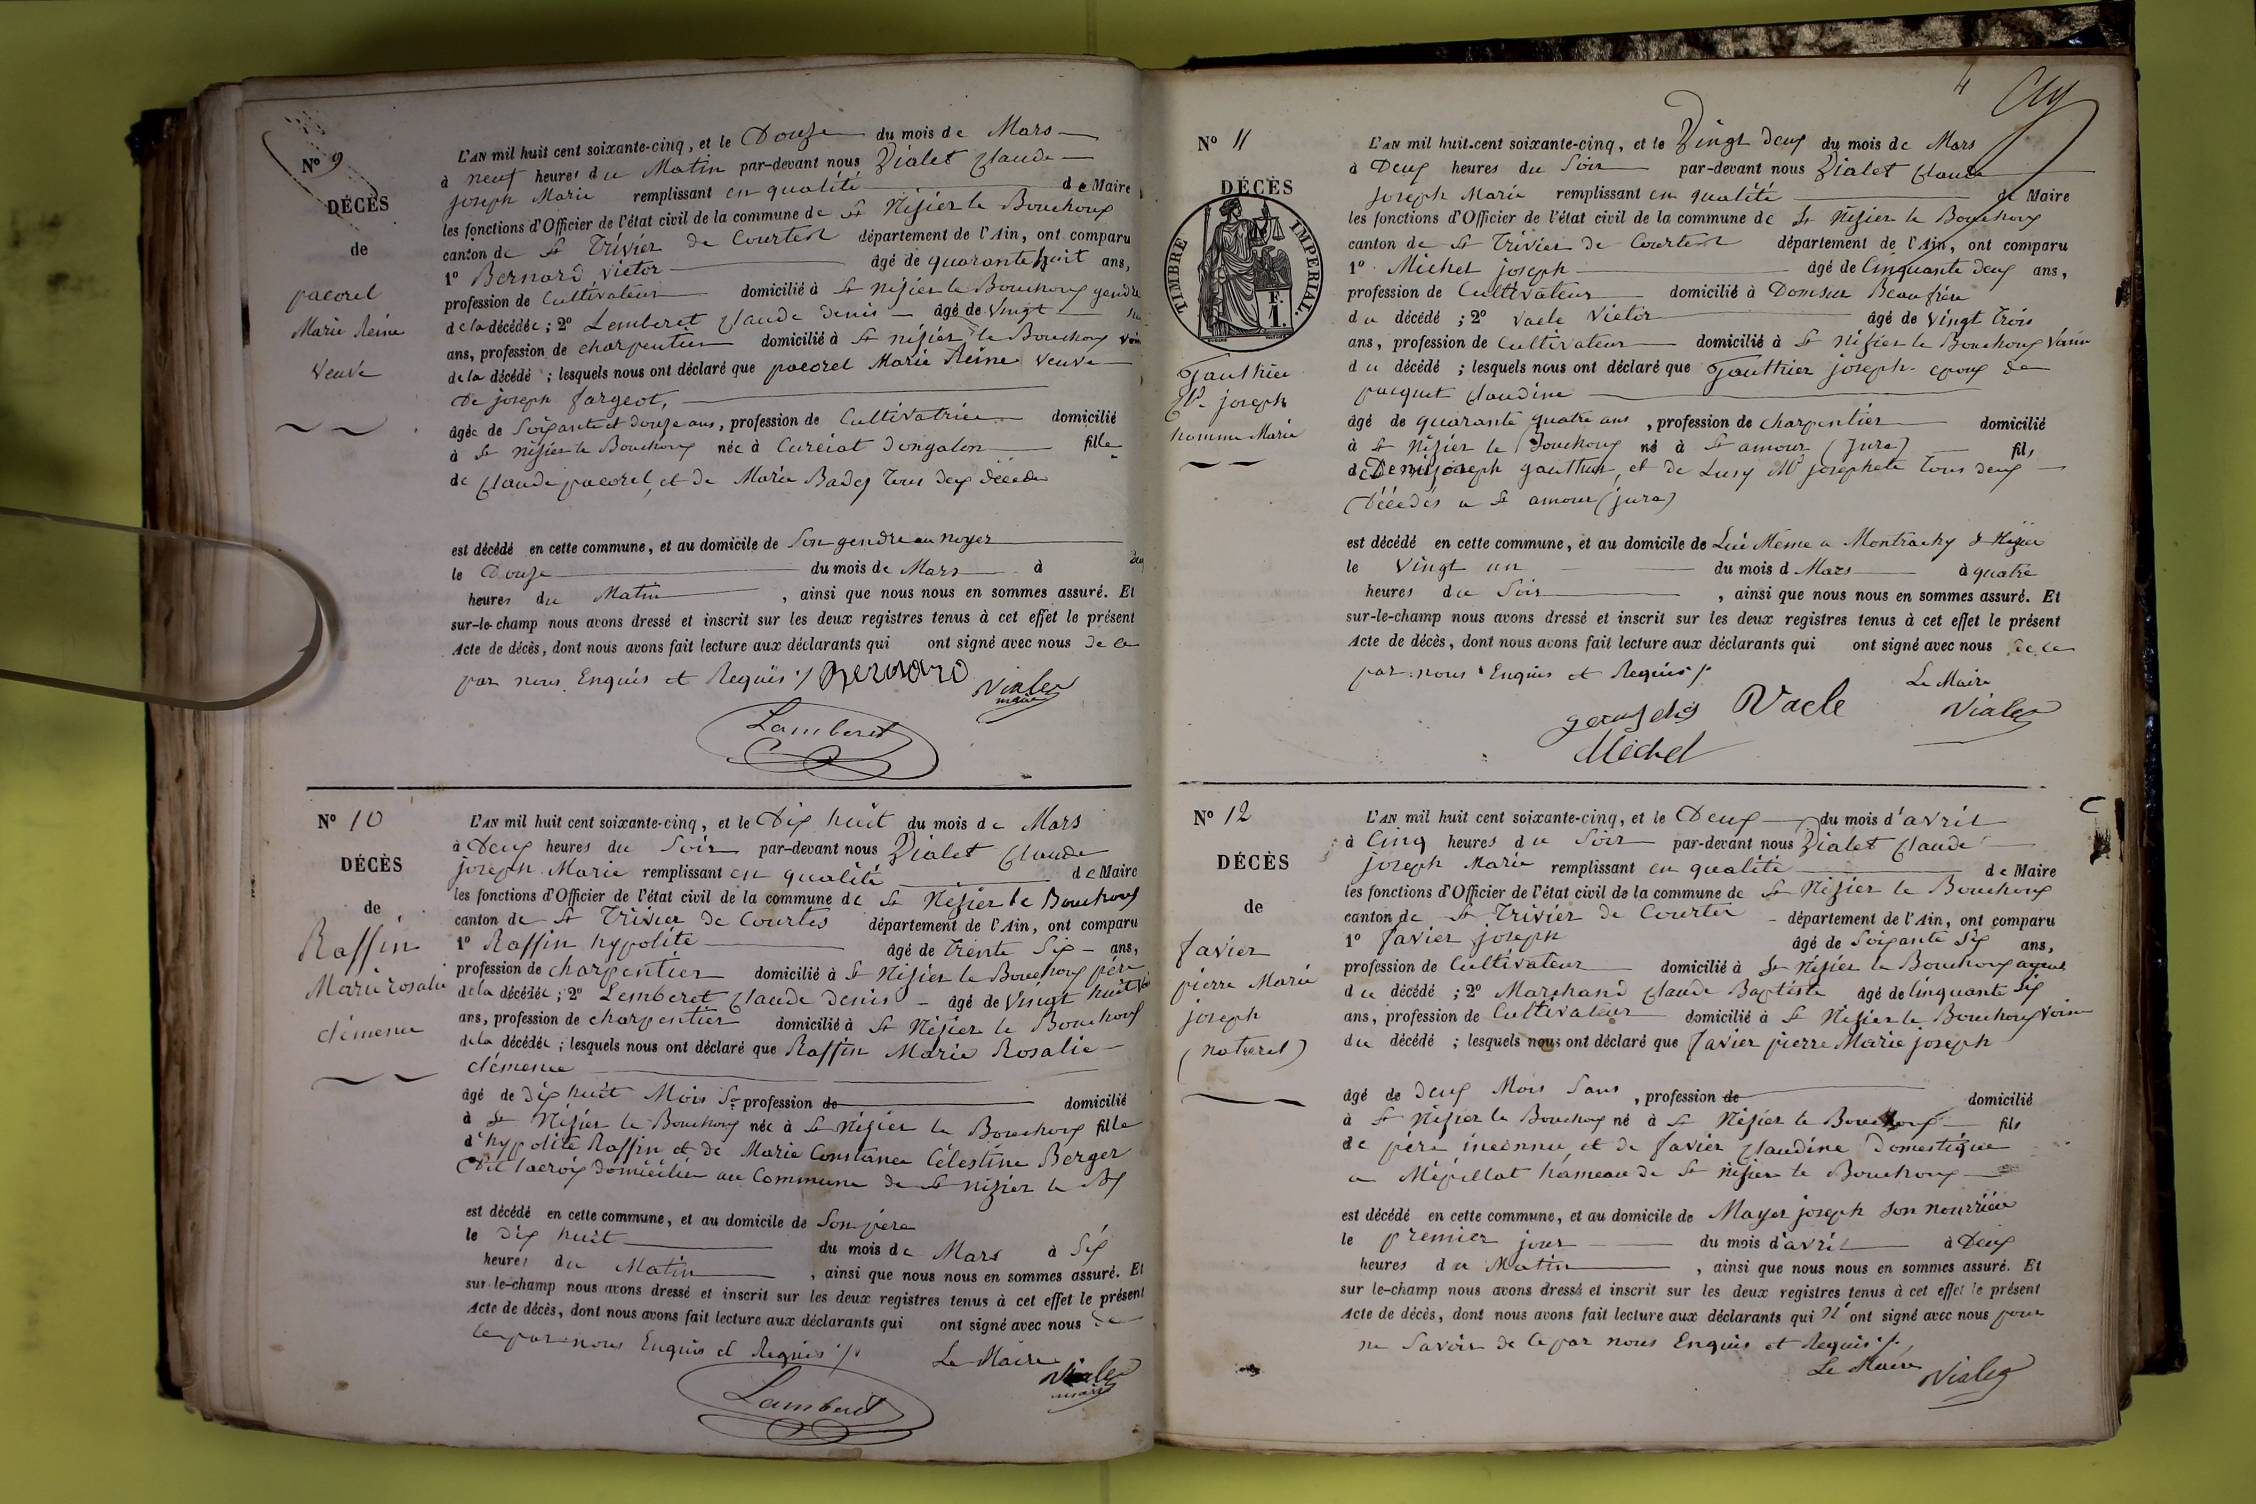 N° 9
DÉCÈS
de
pacorel
Marie Reine
Veuve
L'AN mil huit cent soixante-cinq, et le Douze du mois de Mars
à neuf heures du Matin par-devant nous Vialet Claude
joseph Marie remplissant en qualité de Maire
les fonctions d'Officier de l'état civil de la commune de St Nizier le Bouchoux
canton de St Trivier de Courtes département de l'Ain, ont comparu
1° Bernard Victor âgé de quarante huit ans,
profession de Cultivateur domicilié à St Nizier le Bouchoux gendre
de la décédée ; 2° Lemberet Claude denis âgé de Vingt
ans, profession de charpentier domicilié à St nizier le Bouchoux
de la décédé ; lesquels nous ont déclaré que pacorel Marie Reine veuve
de joseph fargeot,
âgée de Soixante et douze ans, profession de Cultivatrice domicilié
à St Nizier le Bouchoux née à Curciat dongalon fille
de Claude pacorel, et de Marie Badez Tous deux décédés
est décédé en cette commune, et au domicile de Son gendre au noyer
le Douze du mois de Mars à
heures du Matin , ainsi que nous nous en sommes assuré. Et
sur-le-champ nous avons dressé et inscrit sur les deux registres tenus à cet effet le présent
Acte de décès, dont nous avons fait lecture aux déclarants qui ont signé avec nous de ce
par nous Enquis et Requis ./. Bernard
Vialet
maire
Lamberet
N° 10
DÉCÈS
de
Raffin
Marie rosalie
clémence
L'AN mil huit cent soixante-cinq, et le Dix huit du mois de Mars
à Deux heures du Soir par-devant nous Vialet Claude
joseph Marie remplissant en qualité de Maire
les fonctions d'Officier de l'état civil de la commune de St Nizier le Bouchoux
canton de St Trivier de Courtes département de l'Ain, ont comparu
1° Raffin hypolite âgé de trente Six ans,
profession de charpentier domicilié à St Nizier le Bouchoux père
de la décédée ; 2° Lemberet Claude denis âgé de Vingt huit
ans, profession de charpentier domicilié à St Nizier le Bouchoux
de la décédée ; lesquels nous ont déclaré que Raffin Marie Rosalie
clémence
âgé de dix huit Mois Ss profession de domicilié
à St Nizier le Bouchoux née à St Nizier le Bouchoux fille
d'hypolite Raffin et de Marie Constance Célestine Berger
dit lacroix domicilié au Commune de St nizier le Bx
est décédé en cette commune, et au domicile de Son père
le dix huit du mois de Mars à Six
heures du Matin , ainsi que nous nous en sommes assuré. Et
sur-le-champ nous avons dressé et inscrit sur les deux registres tenus à cet effet le présent
Acte de décès, dont nous avons fait lecture aux déclarants qui ont signé avec nous de
ce par nous Enquis et Requis ./.
Le Maire
Vialet
maire
Lamberet
4
N° 11
DÉCÈS
TIMBRE IMPERIAL.
F.
1.
Gauthier
joseph
homme Marié
L'AN mil huit-cent soixante-cinq, et le Vingt deux du mois de Mars
à Deux heures du Soir par-devant nous Vialet Claude
joseph Marie remplissant en qualité de Maire
les fonctions d'Officier de l'état civil de la commune de St Nizier le Bouchoux
canton de St Trivier de Courtes département de l'Ain, ont comparu
1° Michel joseph âgé de Cinquante deux ans,
profession de Cultivateur domicilié à Domsur Beaufrère
du décédé ; 2° Vacle Victor âgé de Vingt trois
ans, profession de Cultivateur domicilié à St Nizier le Bouchoux Voisin
du décédé ; lesquels nous ont déclaré que Gauthier joseph epoux de
pacquet Claudine
âgé de quarante quatre ans , profession de charpentier domicilié
à St Nizier le Bouchoux né à St amour (Jura) fils
de Denis joseph gauthier, et de Lusy Mie josephete Tous deux
Décédés a St amour (jura)
est décédé en cette commune, et au domicile de Lui Même a Montrachy St Nizier
le Vingt un du mois d Mars à quatre
heures du Soir , ainsi que nous nous en sommes assuré. Et
sur-le-champ nous avons dressé et inscrit sur les deux registres tenus à cet effet le présent
Acte de décès, dont nous avons fait lecture aux déclarants qui ont signé avec nous de ce
par nous Enquis et Requis ./.
Le Maire
Vacle Vialet
Michel
N° 12
DÉCÈS
de
favier
pierre Marie
joseph
(naturel)
L'AN mil huit cent soixante-cinq, et le Deux du mois d'avril
à Cinq heures du Soir par-devant nous Vialet Claude
joseph Marie remplissant en qualité de Maire
les fonctions d'Officier de l'état civil de la commune de St Nizier le Bouchoux
canton de St Trivier de Courtes département de l'Ain, ont comparu
1° favier joseph âgé de Soixante Six ans,
profession de Cultivateur domicilié à St Nizier le Bouchoux ayeul
du décédé ; 2° Marchand Claude Baptiste âgé de Cinquante Six
ans, profession de Cultivateur domicilié à St Nizier le Bouchoux Voisin
du décédé ; lesquels nous ont déclaré que favier pierre Marie joseph
âgé de deux Mois Sans , profession de domicilié
à St Nizier le Bouchoux né à St Nizier le Bouchoux fils
de père inconnu et de favier Claudine Domestique
a Mépillat hameau de St nizier le Bouchoux
est décédé en cette commune, et au domicile de Mayer joseph son nourricier
le premier jour du mois d'avril à Deux
heures du Matin , ainsi que nous nous en sommes assuré. Et
sur le-champ nous avons dressé et inscrit sur les deux registres tenus à cet effet le présent
Acte de décès, dont nous avons fait lecture aux déclarants qui n'ont signé avec nous pour
ne Savoir de ce par nous Enquis et Requis ./.
Le Maire Vialet